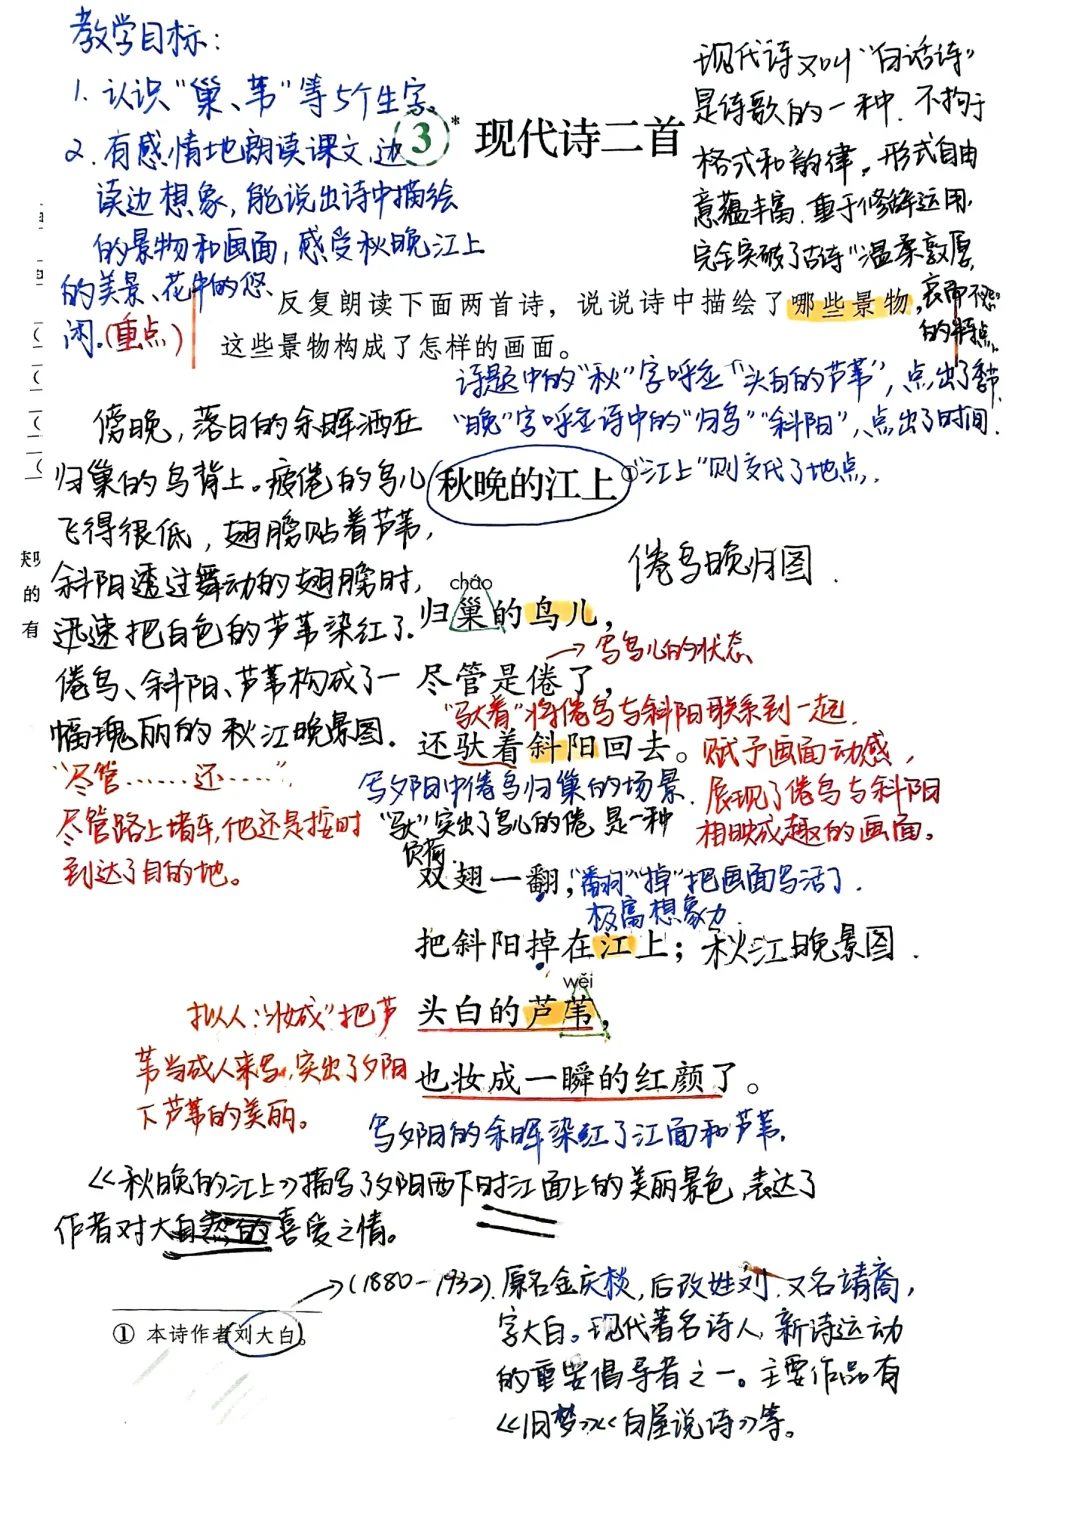 教学目标:
1. 认识“巢、苇”等5个生字。
2. 有感情地朗读课文,边
读边想象,能说出诗中描绘
的景物和画面,感受秋晚江上
的美景、花牛的悠
闲。(重点)
现代诗又叫“白话诗”
是诗歌的一种.不拘于
格式和韵律。形式自由
意蕴丰富.重于修辞运用.
完全突破了古诗“温柔敦厚,
哀而不怨”
的特点.
3* 现代诗二首
反复朗读下面两首诗,说说诗中描绘了哪些景物,
这些景物构成了怎样的画面。
诗题中的“秋”字呼应“头白的芦苇”,点出了季节
“晚”字呼应诗中的“归鸟”“斜阳”,点出了时间.
“江上”则交代了地点.
秋晚的江上①
傍晚,落日的余晖洒在
归巢的鸟背上。疲倦的鸟儿
飞得很低,翅膀贴着芦苇,
斜阳透过舞动的翅膀时,
迅速把白色的芦苇染红了.
倦鸟、斜阳、芦苇构成了一
幅瑰丽的秋江晚景图.
郏
的
有
倦鸟晚归图.
cháo
归巢的鸟儿,
→写鸟儿的状态
尽管是倦了,
“驮着”将倦鸟与斜阳联系到一起.
还驮着斜阳回去。
赋予画面动感,
展现了倦鸟与斜阳
相映成趣的画面。
写夕阳中倦鸟归巢的场景.
“驮”突出了鸟儿的倦 是一种
负荷.
“尽管……还……”
尽管路上堵车,他还是按时
到达了目的地。
双翅一翻,
“翻”“掉”把画面写活了.
极富想象力.
把斜阳掉在江上;
秋江晚景图.
wěi
头白的芦苇,
也妆成一瞬的红颜了。
拟人:“妆成”把芦
苇当成人来写,突出了夕阳
下芦苇的美丽。
写夕阳的余晖染红了江面和芦苇.
《秋晚的江上》描写了夕阳西下时江面上的美丽景色,表达了
作者对大自然的喜爱之情。
→(1880-1932).原名金庆棪,后改姓刘.又名靖裔,
字大白。现代著名诗人,新诗运动
的重要倡导者之一。主要作品有
《旧梦》《白屋说诗》等。
① 本诗作者刘大白。